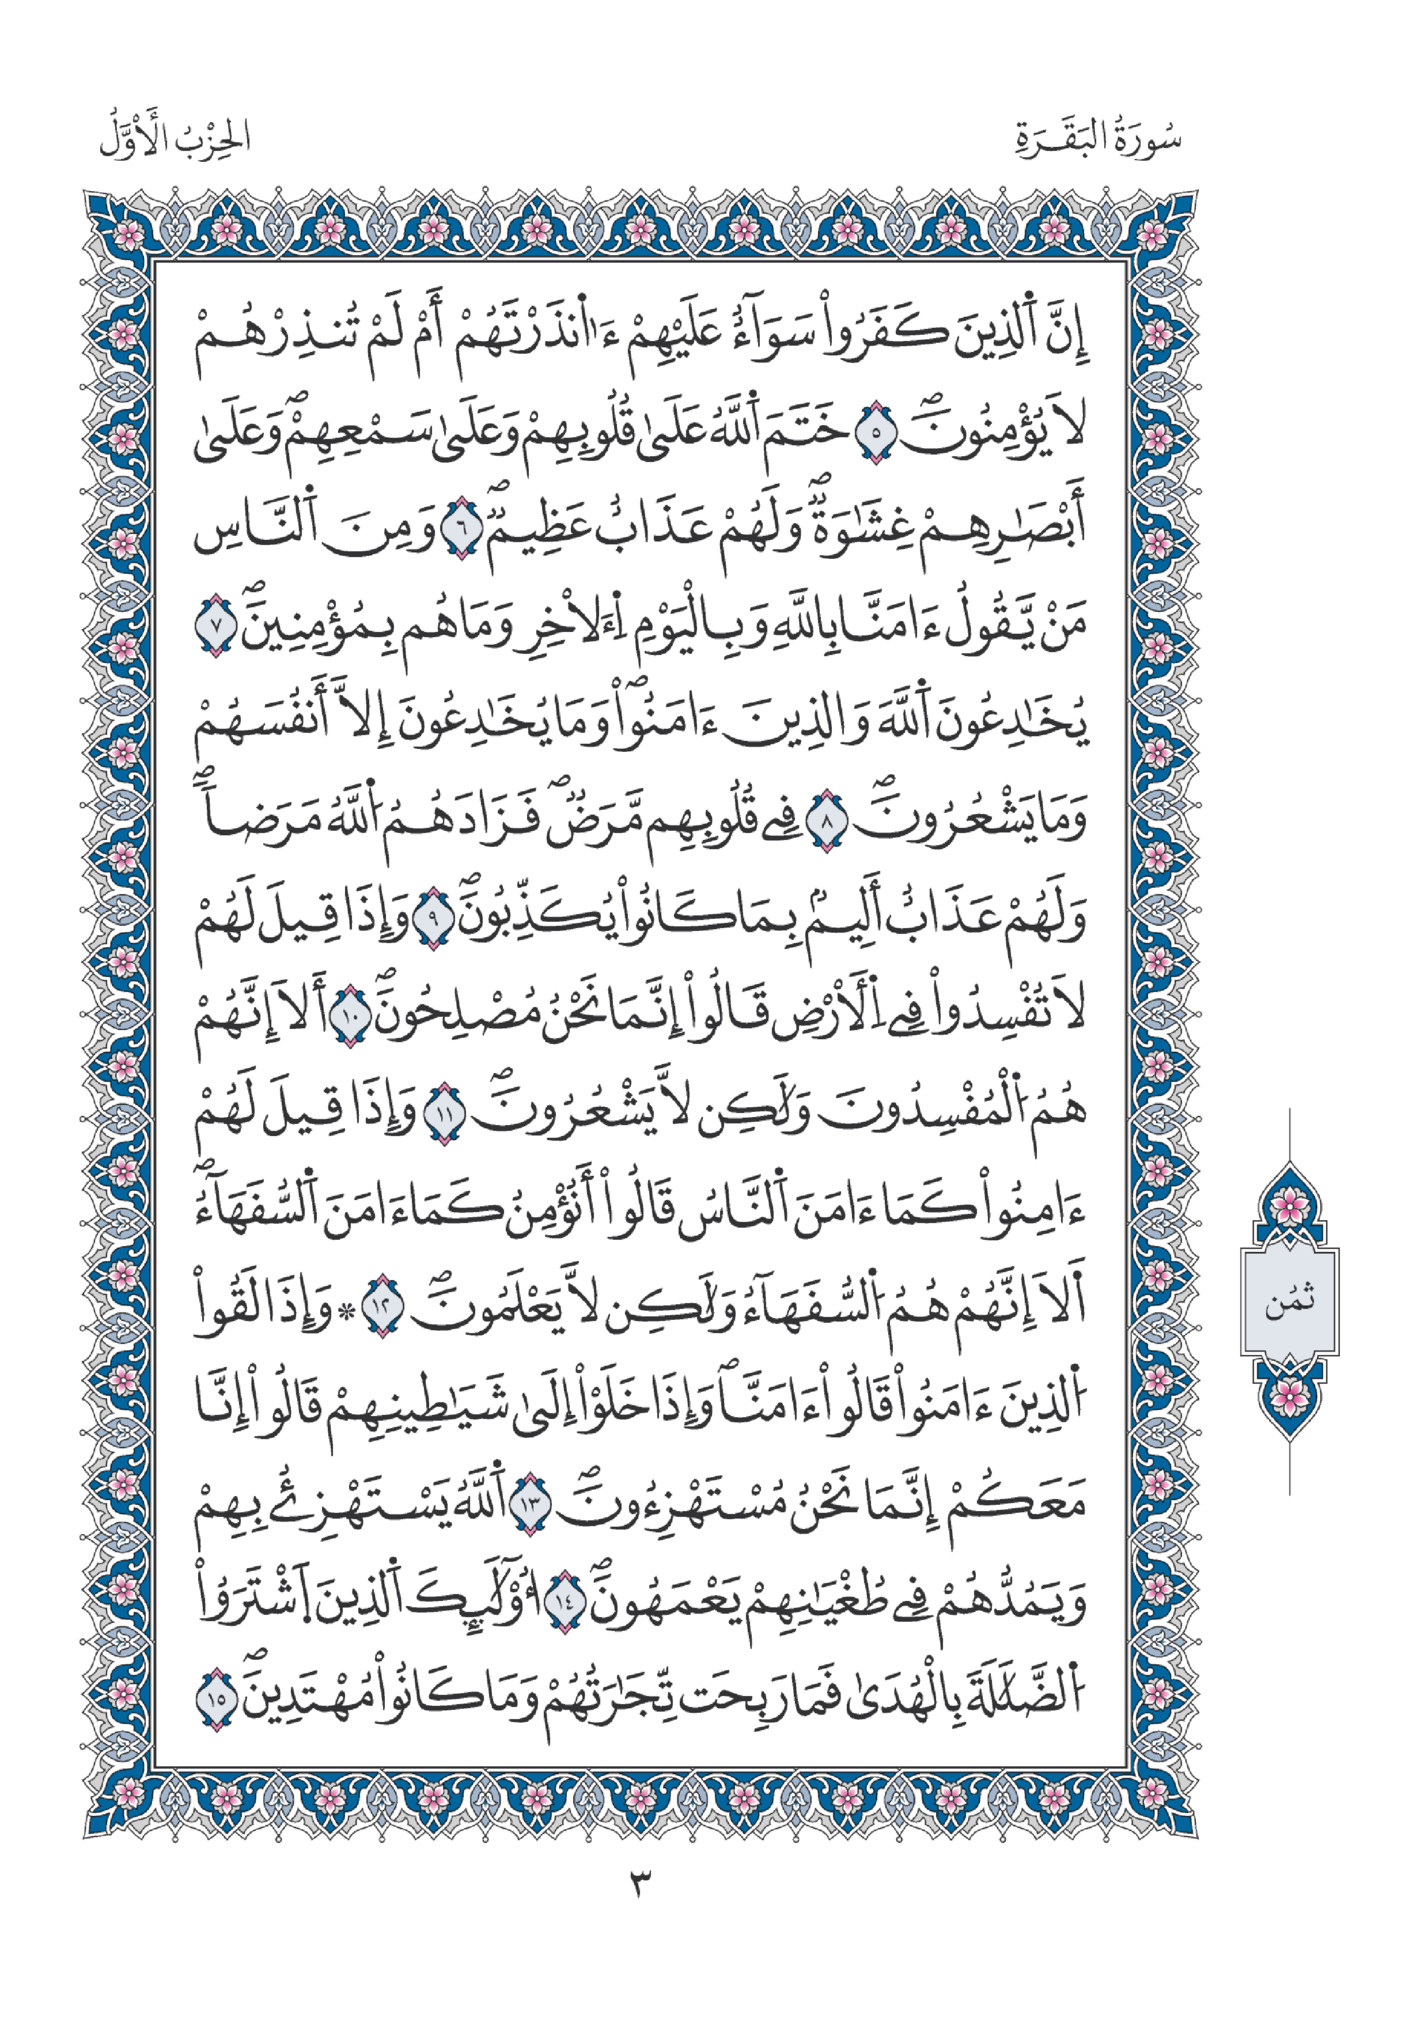 سُورَةُ البَقَرَةِ
الحِزْبُ الأَوَّلُ
إِنَّ اَ۬لذِينَ كَفَرُواْ سَوَآءٌ عَلَيْهِمْ ءَآنذَرْتَهُمْ أَمْ لَمْ تُنذِرْهُمْ
لَا يُؤْمِنُونَۖ ٥ خَتَمَ اَ۬للَّهُ عَلَىٰ قُلُوبِهِمْ وَعَلَىٰ سَمْعِهِمْۖ وَعَلَىٰ
أَبْصَٰرِهِمْ غِشَٰوَةٌۖ وَلَهُمْ عَذَابٌ عَظِيمٌۖ ٦ وَمِنَ اَ۬لنَّاسِ
مَنْ يَّقُولُ ءَامَنَّا بِاللَّهِ وَبِالْيَوْمِ اِ۬ءَلَاخِرِ وَمَا هُم بِمُؤْمِنِينَۖ ٧
يُخَٰدِعُونَ اَ۬للَّهَ وَالذِينَ ءَامَنُواْۖ وَمَا يُخَٰدِعُونَ إِلَّا أَنفُسَهُمْ
وَمَا يَشْعُرُونَۖ ٨ فِے قُلُوبِهِم مَّرَضٌۖ فَزَادَهُمُ اُ۬للَّهُ مَرَضاٗۖ
وَلَهُمْ عَذَابٌ أَلِيمُۢ بِمَا كَانُواْ يُكَذِّبُونَۖ ٩ وَإِذَا قِيلَ لَهُمْ
لَا تُفْسِدُواْ فِے اِ۬لَارْضِ قَالُواْ إِنَّمَا نَحْنُ مُصْلِحُونَۖ ١٠ أَلَا إِنَّهُمْ
هُمُ اُ۬لْمُفْسِدُونَ وَلَٰكِن لَّا يَشْعُرُونَۖ ١١ وَإِذَا قِيلَ لَهُمْ
ءَامِنُواْ كَمَا ءَامَنَ اَ۬لنَّاسُ قَالُواْ أَنُؤْمِنُ كَمَا ءَامَنَ اَ۬لسُّفَهَآءُۖ
اَلَا إِنَّهُمْ هُمُ اُ۬لسُّفَهَآءُ وَلَٰكِن لَّا يَعْلَمُونَۖ ١٢ * وَإِذَا لَقُواْ
اُ۬لذِينَ ءَامَنُواْ قَالُواْ ءَامَنَّاۖ وَإِذَا خَلَوْاْ إِلَىٰ شَيَٰطِينِهِمْ قَالُواْ إِنَّا
مَعَكُمْ إِنَّمَا نَحْنُ مُسْتَهْزِءُونَۖ ١٣ اَ۬للَّهُ يَسْتَهْزِئُ بِهِمْ
وَيَمُدُّهُمْ فِے طُغْيَٰنِهِمْ يَعْمَهُونَۖ ١٤ أُوْلَٰٓئِكَ اَ۬لذِينَ اَ۪شْتَرَوُاْ
اُ۬لضَّلَٰلَةَ بِالْهُدَىٰ فَمَا رَبِحَت تِّجَٰرَتُهُمْ وَمَا كَانُواْ مُهْتَدِينَۖ ١٥
ثمُن
٣